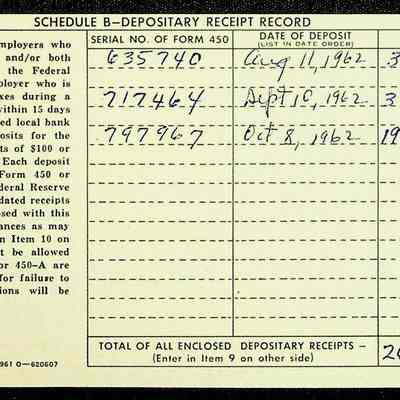 SCHEDULE B—DEPOSITARY RECEIPT RECORD
mployers who
and/or both
the Federal
ployer who is
xes during a
within 15 days
ed local bank
posits for the
ts of $100 or
Each deposit
Form 450 or
ederal Reserve
dated receipts
osed with this
ances as may
n Item 10 on
t be allowed
or 450-A are
for failure to
ions will be
961 O—620607
SERIAL NO. OF FORM 450
DATE OF DEPOSIT
(LIST IN DATE ORDER)
635740 Aug 11, 1962 3
717464 Sept 10, 1962 3
797967 Oct 8, 1962 19
TOTAL OF ALL ENCLOSED DEPOSITARY RECEIPTS –
(Enter in Item 9 on other side)
20